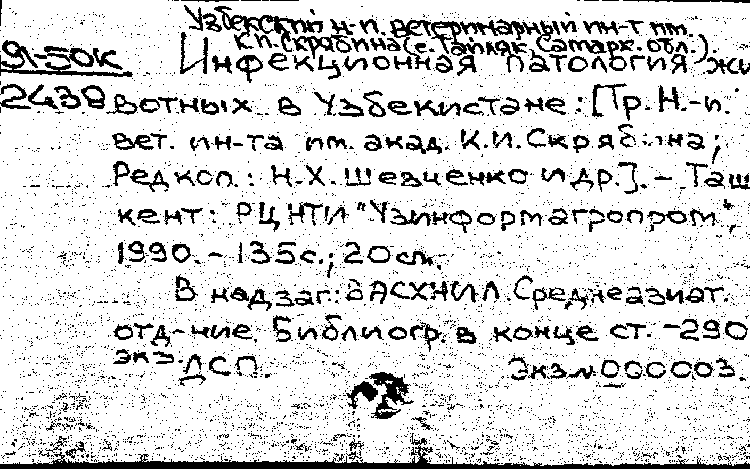 Узбекский н-и. ветеринарный ин-т им.
К.И. Скрябина (с. Тайляк, Самарк. обл.).
91-50К Инфекционная патология жи
2438 вотных в Узбекистане: [Тр. Н.-и.
вет. ин-та им. акад. К.И. Скрябина;
Редкол.: Н.Х. Шевченко и др.]. – Таш
кент: РЦНТИ "Узинформагропром",
1990. – 135с.; 20см.
В надзаг: ВАСХНИЛ. Среднеазиат.
отд-ние. Библиогр. в конце ст. – 290
экз. ДСП. Экз № 000003.